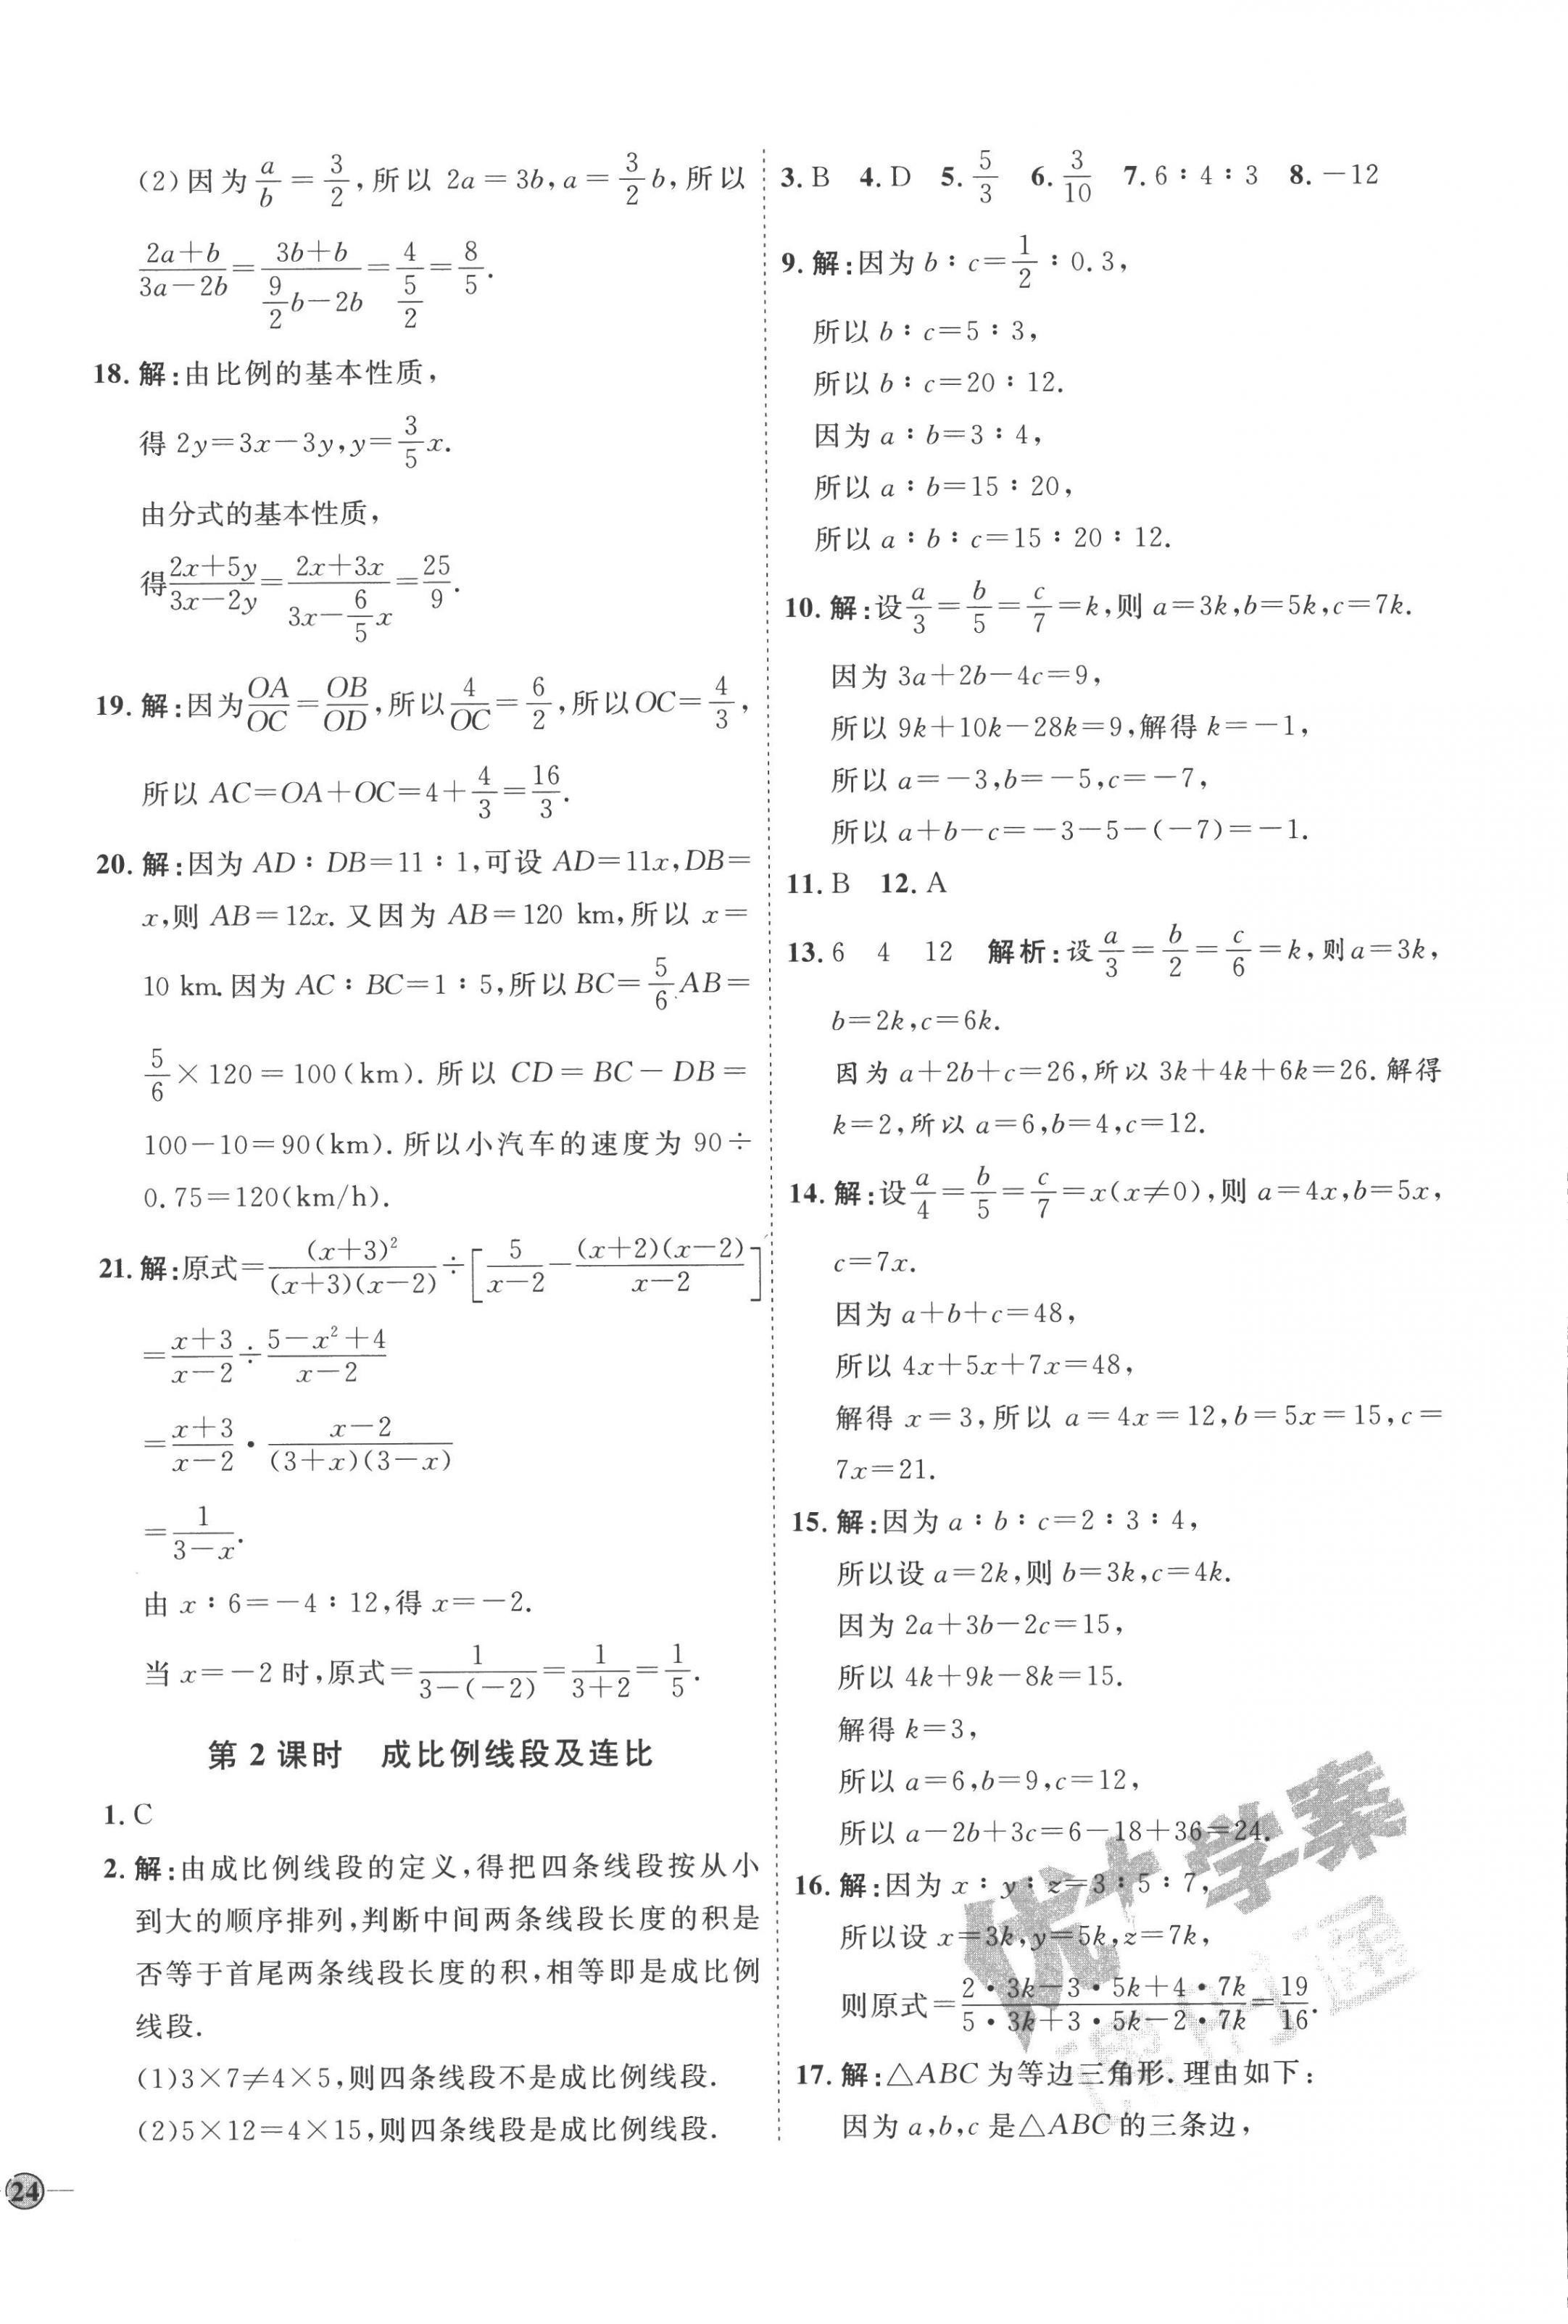 (2)因为a/b=3/2,所以 2a=3b,a=3/2b,所以
(2a+b)/(3a-2b)=(3b+b)/(9/2b-2b)=4/(5/2)=8/5.
18.解:由比例的基本性质,
得 2y=3x-3y,y=3/5x.
由分式的基本性质,
得(2x+5y)/(3x-2y)=(2x+3x)/(3x-6/5x)=25/9.
19.解:因为OA/OC=OB/OD,所以4/OC=6/2,所以OC=4/3,
所以 AC=OA+OC=4+4/3=16/3.
20.解:因为 AD∶DB=11∶1,可设 AD=11x,DB=
x,则 AB=12x. 又因为 AB=120 km,所以 x=
10 km.因为 AC∶BC=1∶5,所以 BC=5/6AB=
5/6×120=100(km). 所以 CD=BC-DB=
100-10=90(km). 所以小汽车的速度为 90÷
0.75=120(km/h).
21.解:原式=(x+3)²/((x+3)(x-2))÷[5/(x-2)-(x+2)(x-2)/(x-2)]
=(x+3)/(x-2)÷(5-x²+4)/(x-2)
=(x+3)/(x-2)·(x-2)/((3+x)(3-x))
=1/(3-x).
由 x∶6=-4∶12,得 x=-2.
当 x=-2 时,原式=1/(3-(-2))=1/(3+2)=1/5.
第 2 课时 成比例线段及连比
1.C
2.解:由成比例线段的定义,得把四条线段按从小
到大的顺序排列,判断中间两条线段长度的积是
否等于首尾两条线段长度的积,相等即是成比例
线段.
(1)3×7≠4×5,则四条线段不是成比例线段.
(2)5×12=4×15,则四条线段是成比例线段.
24
3.B 4.D 5.5/3 6.3/10 7.6∶4∶3 8.-12
9.解:因为 b∶c=1/2∶0.3,
所以 b∶c=5∶3,
所以 b∶c=20∶12.
因为 a∶b=3∶4,
所以 a∶b=15∶20,
所以 a∶b∶c=15∶20∶12.
10.解:设a/3=b/5=c/7=k,则 a=3k,b=5k,c=7k.
因为 3a+2b-4c=9,
所以 9k+10k-28k=9,解得 k=-1,
所以 a=-3,b=-5,c=-7,
所以 a+b-c=-3-5-(-7)=-1.
11.B 12.A
13.6 4 12 解析:设a/3=b/2=c/6=k,则 a=3k,
b=2k,c=6k.
因为 a+2b+c=26,所以 3k+4k+6k=26. 解得
k=2,所以 a=6,b=4,c=12.
14.解:设a/4=b/5=c/7=x(x≠0),则 a=4x,b=5x,
c=7x.
因为 a+b+c=48,
所以 4x+5x+7x=48,
解得 x=3,所以 a=4x=12,b=5x=15,c=
7x=21.
15.解:因为 a∶b∶c=2∶3∶4,
所以设 a=2k,则 b=3k,c=4k.
因为 2a+3b-2c=15,
所以 4k+9k-8k=15.
解得 k=3,
所以 a=6,b=9,c=12,
所以 a-2b+3c=6-18+36=24.
16.解:因为 x∶y∶z=3∶5∶7,
所以设 x=3k,y=5k,z=7k,
则原式=(2·3k-3·5k+4·7k)/(5·3k+3·5k-2·7k)=19/16.
17.解:△ABC 为等边三角形. 理由如下:
因为 a,b,c 是△ABC 的三条边,
优+学案
课时通